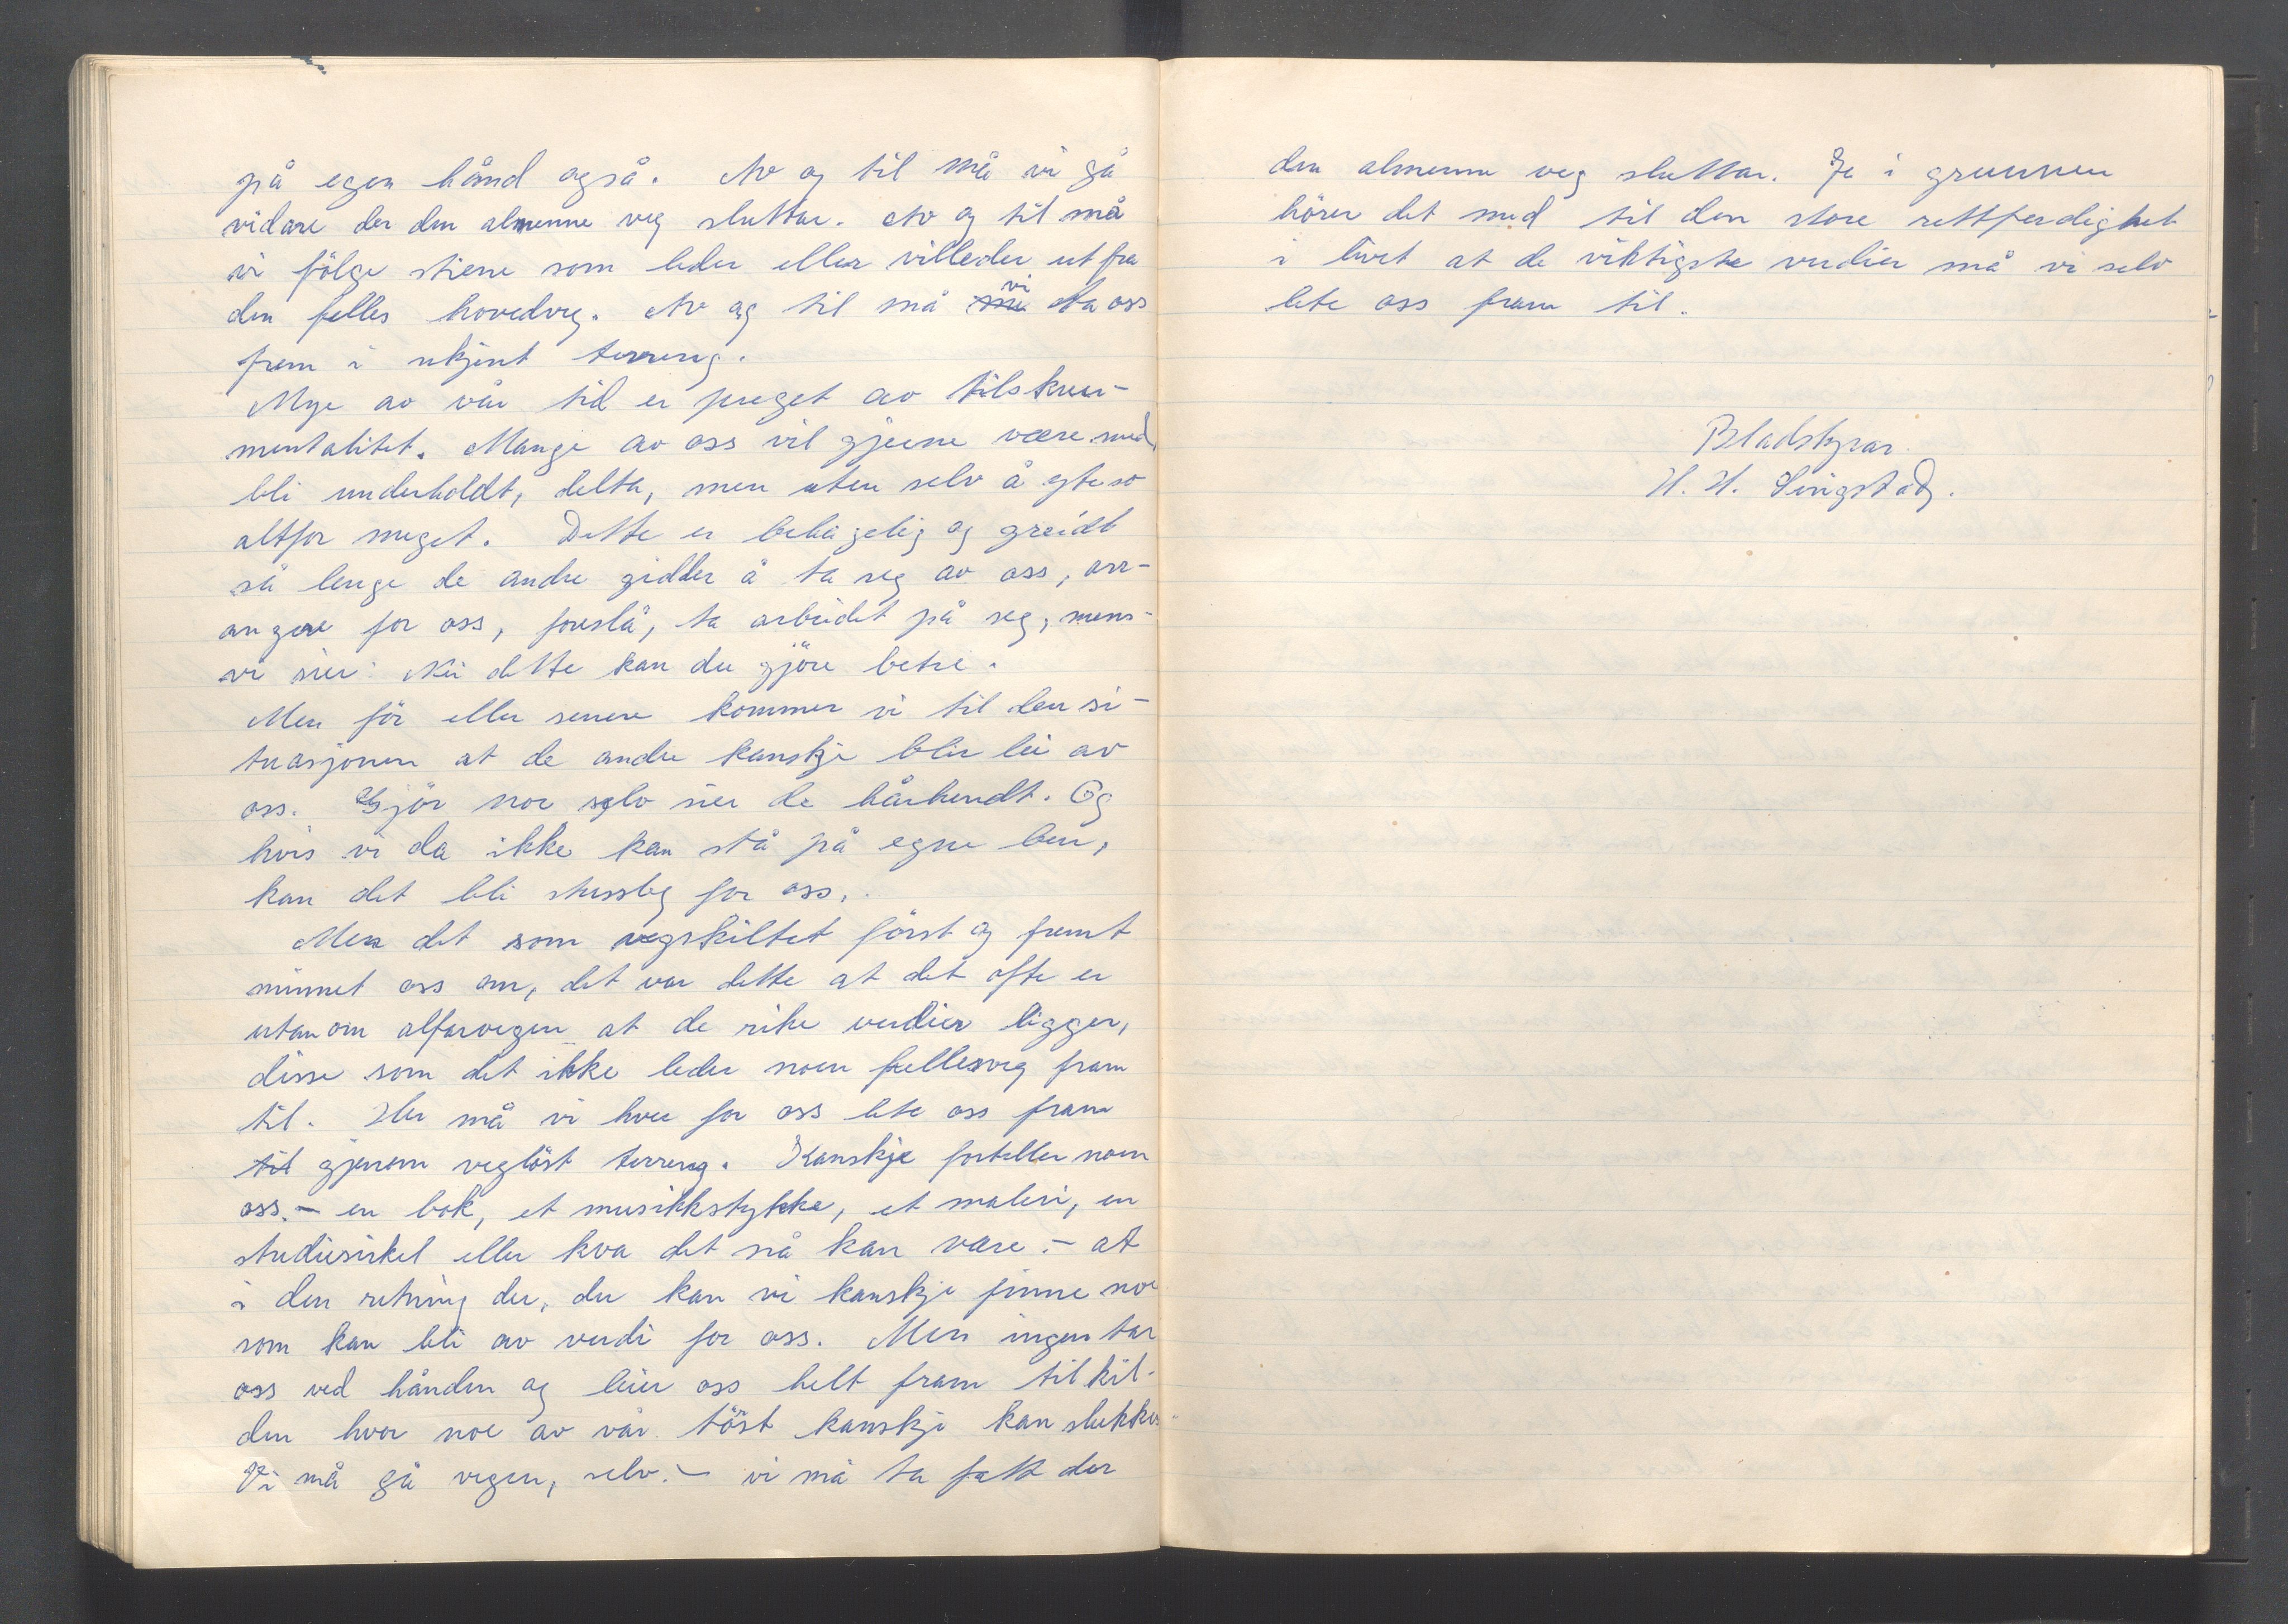 på egen hånd også. Av og til må vi gå
vidare der den almenne veg sluttar. Av og til må
vi fölge stiene som leder eller villeder ut fra
den felles hovedveg. Av og til må vi ta oss
frem i ukjent terreng.
Mye av vår tid er preget av tilskuer-
mentalitet. Mange av oss vil gjerne være med,
bli underholdt, delta, men uten selv å yte so
altfor meget. Dette er behagelig og greidt
så lenge de andre gidder å ta seg av oss, arr-
angere for oss, foreslå, ta arbeidet på seg, mens-
vi sier: Nei dette kan du gjöre betre.
Men för eller senere kommer vi til den si-
tuasjonen at de andre kanskje blir lei av
oss. Gjör noe selv sier de hårhendt. Og
hvis vi da ikke kan stå på egne ben,
kan det bli stusslig for oss.
Men det som vegskiltet först og fremst
minnet oss om, det var dette at det ofte er
utanom alfarvegen at de rike verdier ligger,
disse som det ikke leder noen fellesveg fram
til. Her må vi hver for oss lete oss fram
til gjenom veglöst terreng. Kanskje forteller noen
oss. – en bok, et musikkstykke, et maleri, en
studiesirkel eller kva det nå kan være. – at
i den retning der, der kan vi kanskje finne noe
som kan bli av verdi for oss. Men ingen tar
oss ved hånden og leier oss helt fram til kil-
den hvor noe av vår töst kanskje kan slukkes.
Vi må gå vegen, selv. – vi må ta fatt der
den almenne veg sluttar. Ja i grunnen
hörer det med til den store rettferdighet
i livet at de viktigste verdier må vi selv
lete oss fram til.
Bladstyrar
H. H. Singstad.